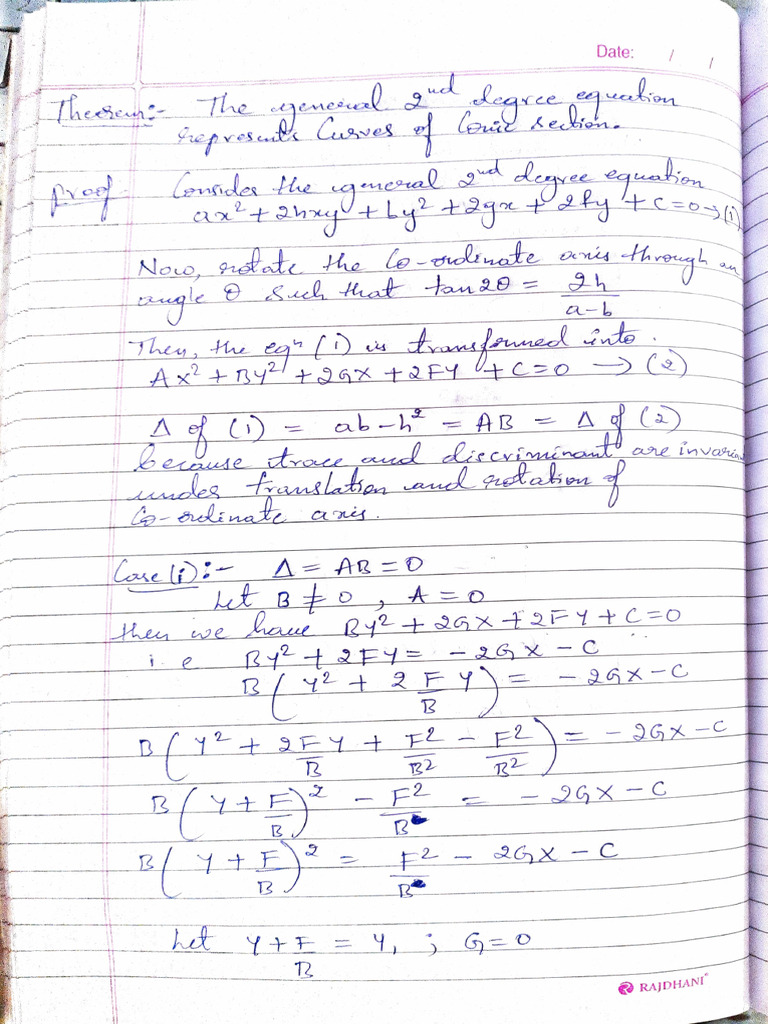 Date: / /
Theorem:- The general 2nd degree equation
represents Curves of Conic Section.
Proof Consider the general 2nd degree equation
ax² + 2hxy + by² + 2gx + 2fy + c = 0 → (1)
Now, rotate the Co-ordinate axis through an
angle θ such that tan2θ = 2h/(a-b)
Then, the eqn (1) is transformed into.
AX² + BY² + 2GX + 2FY + C = 0 → (2)
Δ of (1) = ab - h² = AB = Δ of (2)
because trace and discriminant are invarian
under translation and rotation of
Co-ordinate axis.
Case (i) :- Δ = AB = 0
Let B ≠ 0 , A = 0
then we have BY² + 2GX + 2FY + C = 0
i.e BY² + 2FY = -2GX - C
B(Y² + 2 F/B Y) = -2GX - C
B(Y² + 2F/B Y + F²/B² - F²/B²) = -2GX - C
B(Y + F/B)² - F²/B = -2GX - C
B(Y + F/B)² = F²/B - 2GX - C
Let Y + F/B = Y₁ ; G = 0
RAJDHANI